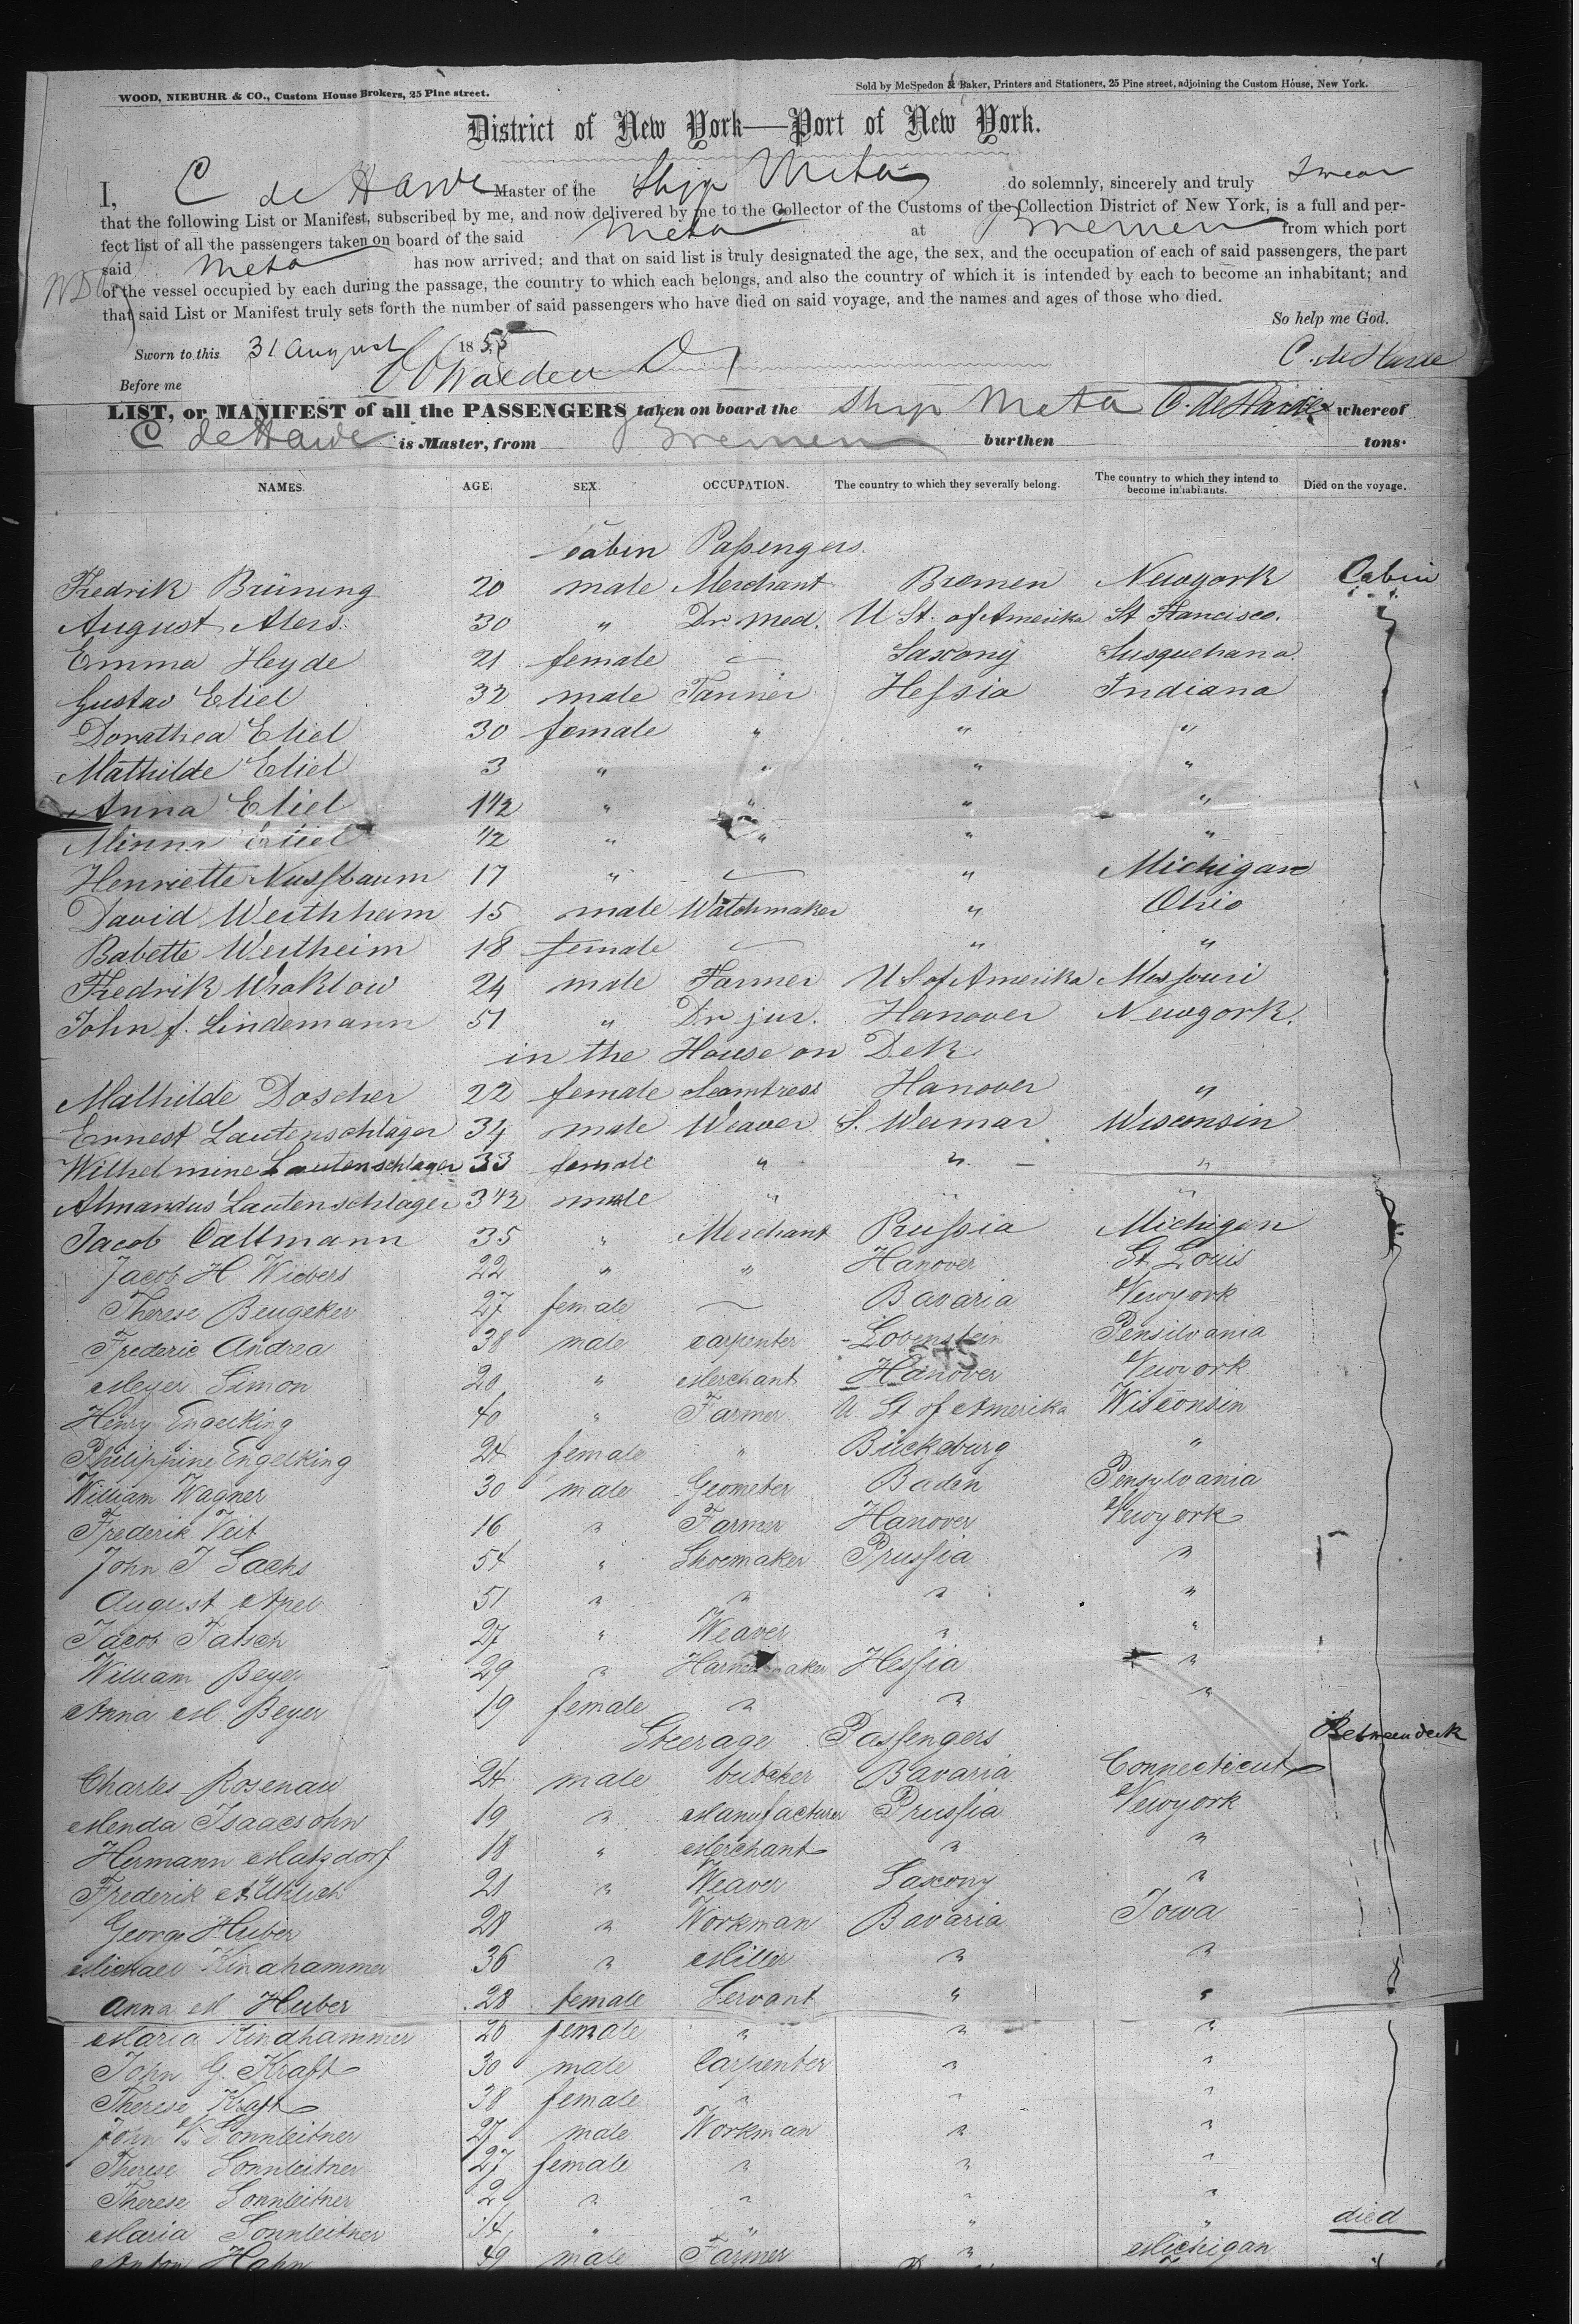 WOOD, NIEBUHR & CO., Custom House Brokers, 25 Pine street.
Sold by McSpedon & Baker, Printers and Stationers, 25 Pine street, adjoining the Custom House, New York.
District of New York—Port of New York.
I, C de Harde Master of the Ship Meta do solemnly, sincerely and truly swear
that the following List or Manifest, subscribed by me, and now delivered by me to the Collector of the Customs of the Collection District of New York, is a full and per-
fect list of all the passengers taken on board of the said Meta at Bremen from which port
said Meta has now arrived; and that on said list is truly designated the age, the sex, and the occupation of each of said passengers, the part
of the vessel occupied by each during the passage, the country to which each belongs, and also the country of which it is intended by each to become an inhabitant; and
that said List or Manifest truly sets forth the number of said passengers who have died on said voyage, and the names and ages of those who died.
So help me God.
Sworn to this 31 August 1855
C. de Harde
Before me
LIST, or MANIFEST of all the PASSENGERS taken on board the Ship Meta C. de Harde whereof
C de Harde is Master, from Bremen burthen tons.
NAMES. AGE. SEX. OCCUPATION. The country to which they severally belong. The country to which they intend to become inhabitants. Died on the voyage.
Cabin Passengers
Fredrik Brüning 20 male Merchant Bremen Newyork Cabin
August Alers. 30 " Dr. med. U St. of Amerika St Francisco.
Emma Heyde 21 female — Saxony Susquehana.
Gustav Eliel 32 male Tanner Hessia Indiana
Dorathea Eliel 30 female " " "
Mathilde Eliel 3 " " " "
Anna Eliel 1 1/2 " " " "
Minna Eliel 1/2 " " " "
Henriette Nussbaum 17 " — " Michigan
David Werthheim 15 male Watchmaker " Ohio
Babette Wertheim 18 female — " "
Fredrik Wroklow 24 male Farmer U S of Amerika Missouri
John f. Lindemann 51 " Dr jur. Hanover Newyork.
in the House on Dek
Mathilde Doscher 22 female Seamtress Hanover "
Ernnest Lautenschläger 34 male Weaver S. Weimar Wisconsin
Wilhelmine Lautenschlager 33 female " " "
Almandus Lautenschlager 3 1/2 male " " "
Jacob Caltmann 35 " Merchant Prussia Michigan
Jacob H Wiebers 22 " " Hanover St Louis
Therese Beugeker 27 female — Bavaria Newyork
Frederic Andrea 38 male carpenter Lobenstein Pensilvania
Meyer Simon 20 " Merchant Hanover Newyork
Henry Engelking 40 " Farmer U. St of Amerika Wisconsin
Philippine Engelking 24 female " Bückeburg "
William Wagner 30 male Geometer Baden Pensylvania
Frederik Veit 16 " Farmer Hanover Newyork
John J Sachs 54 " Shoemaker Prussia "
August Apel 51 " " " "
Jacob Tatsch 27 " Weaver " "
William Beyer 29 " Harnessmaker Hessia "
Anna M. Beyer 19 female " " "
Steerage Passengers Betweendeck
Charles Rosenau 24 male butcker Bavaria Connecticut
Menda Isaacsohn 19 " Manufacturer Prussia Newyork
Hermann Matzdorf 18 " Merchant " "
Frederik 21 " Weaver Saxony "
George Huber 28 " Workman Bavaria Iowa
Michael Kindhammer 36 " Miller " "
Anna M Huber 28 female Servant " "
Maria Kindhammer 26 female " " "
John G. Kraft 30 male Carpenter " "
Therese Kraft 38 female " " "
John Sonnleitner 27 male Workman " "
Therese Sonnleitner 27 female " " "
Therese Sonnleitner 2 " " " "
Maria Sonnleitner 1/4 " " " " died
Anton Hahn 49 male Farmer " Michigan